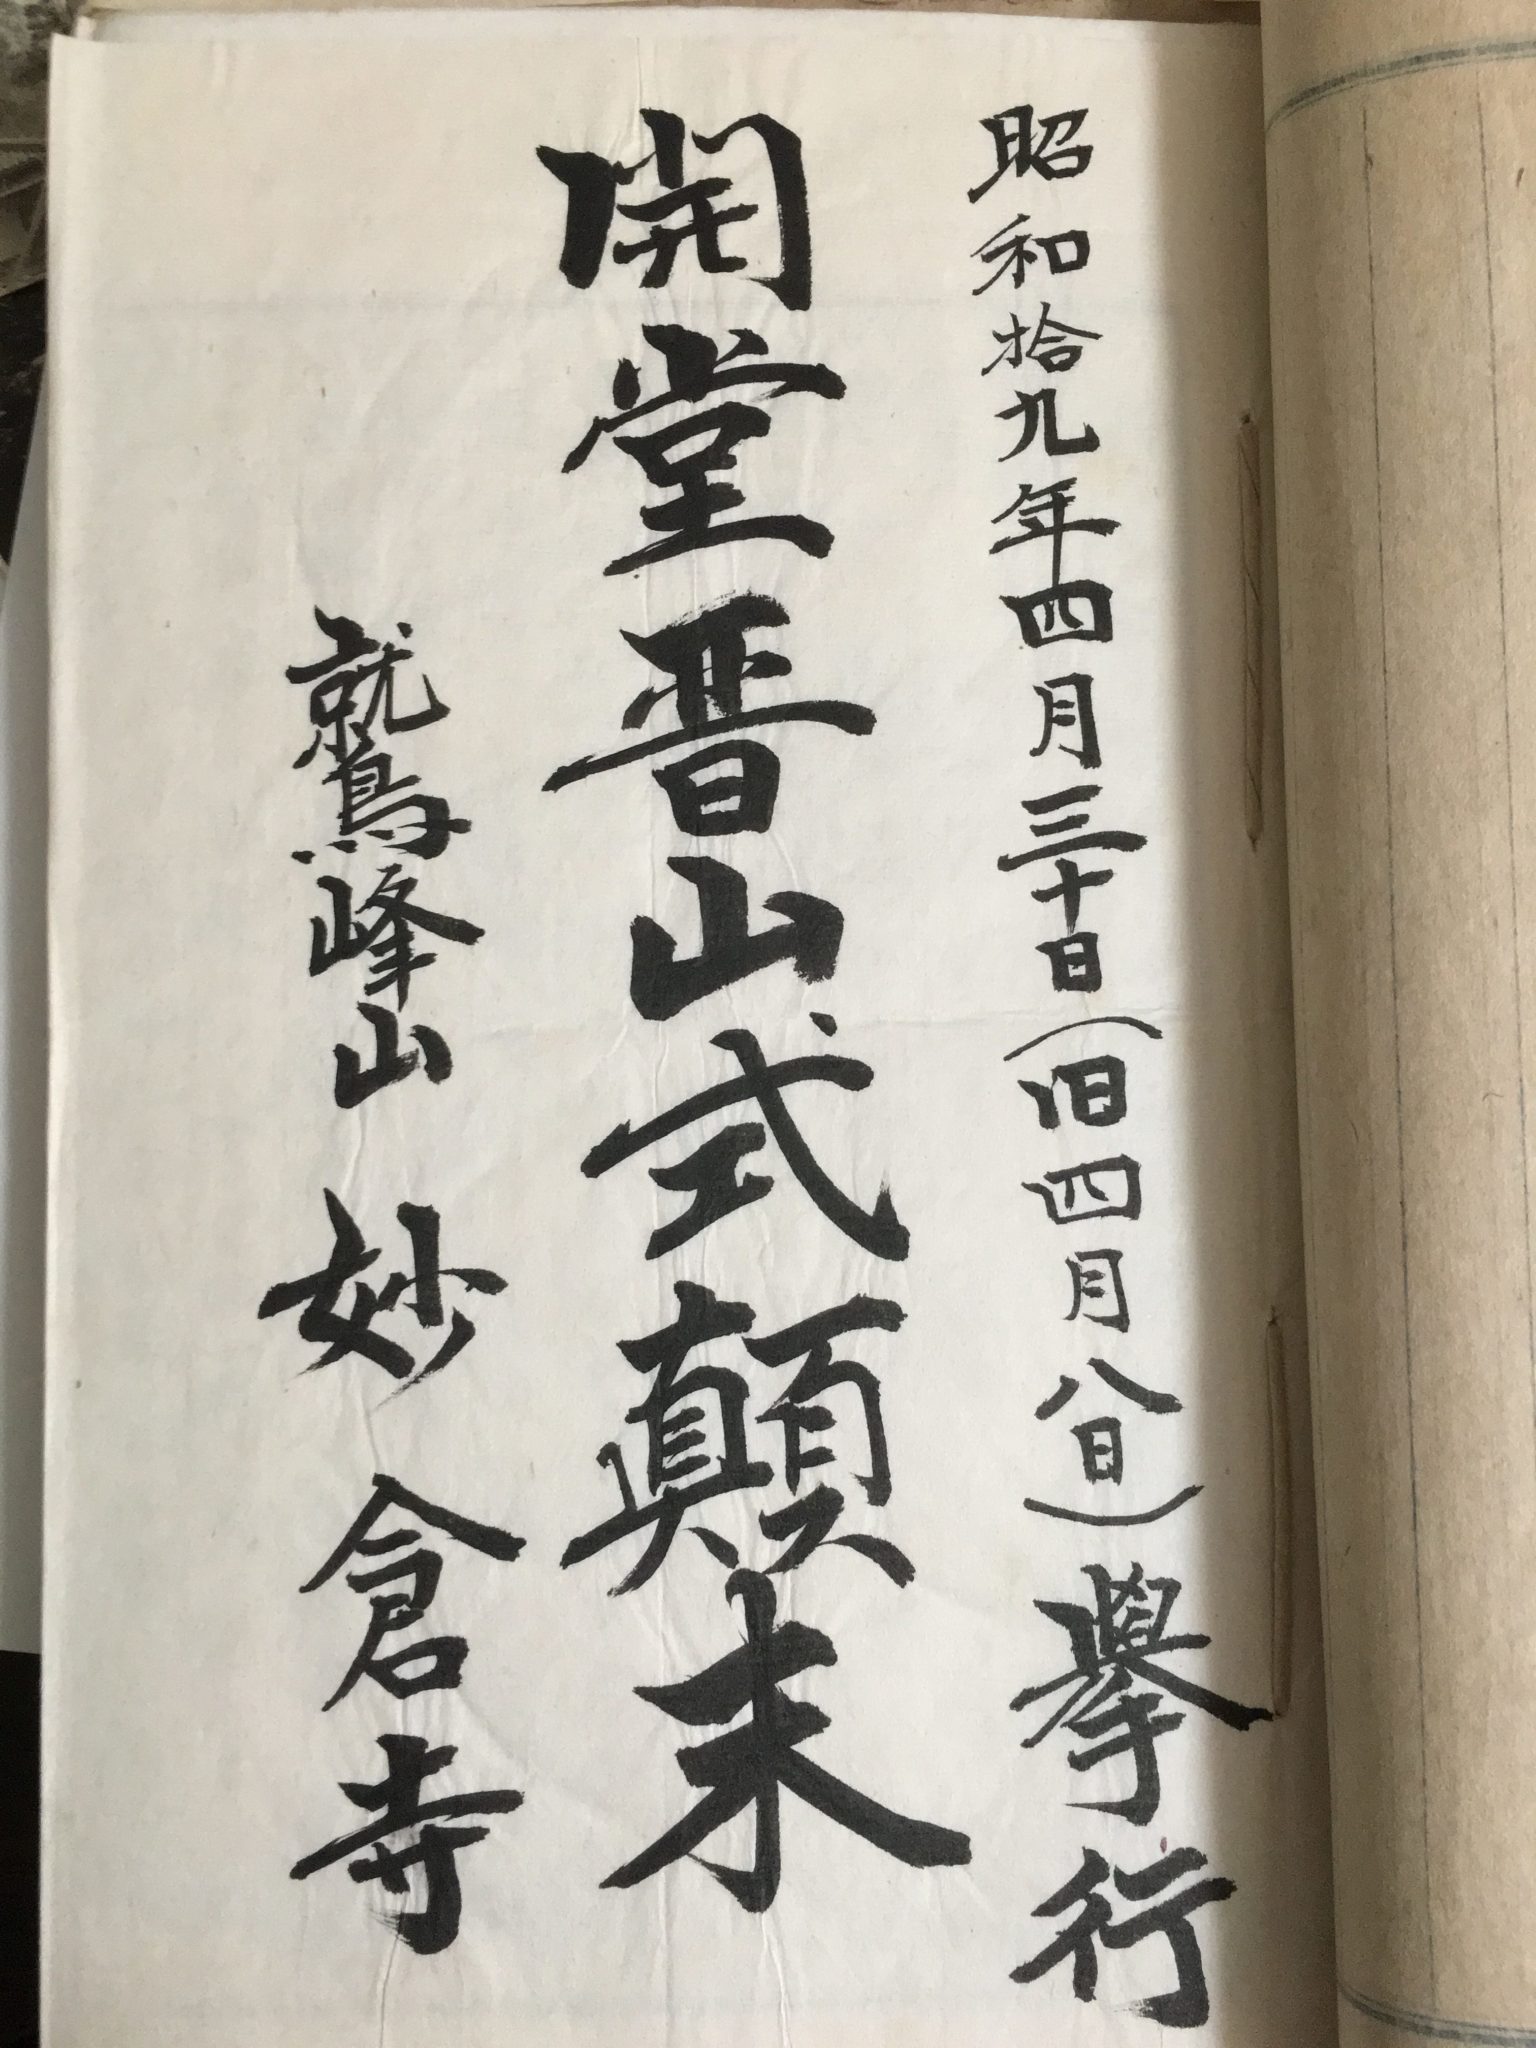 昭和拾九年四月三十日(旧四月八日)擧行
開堂晋山式顛末
鷲峰山 妙倉寺